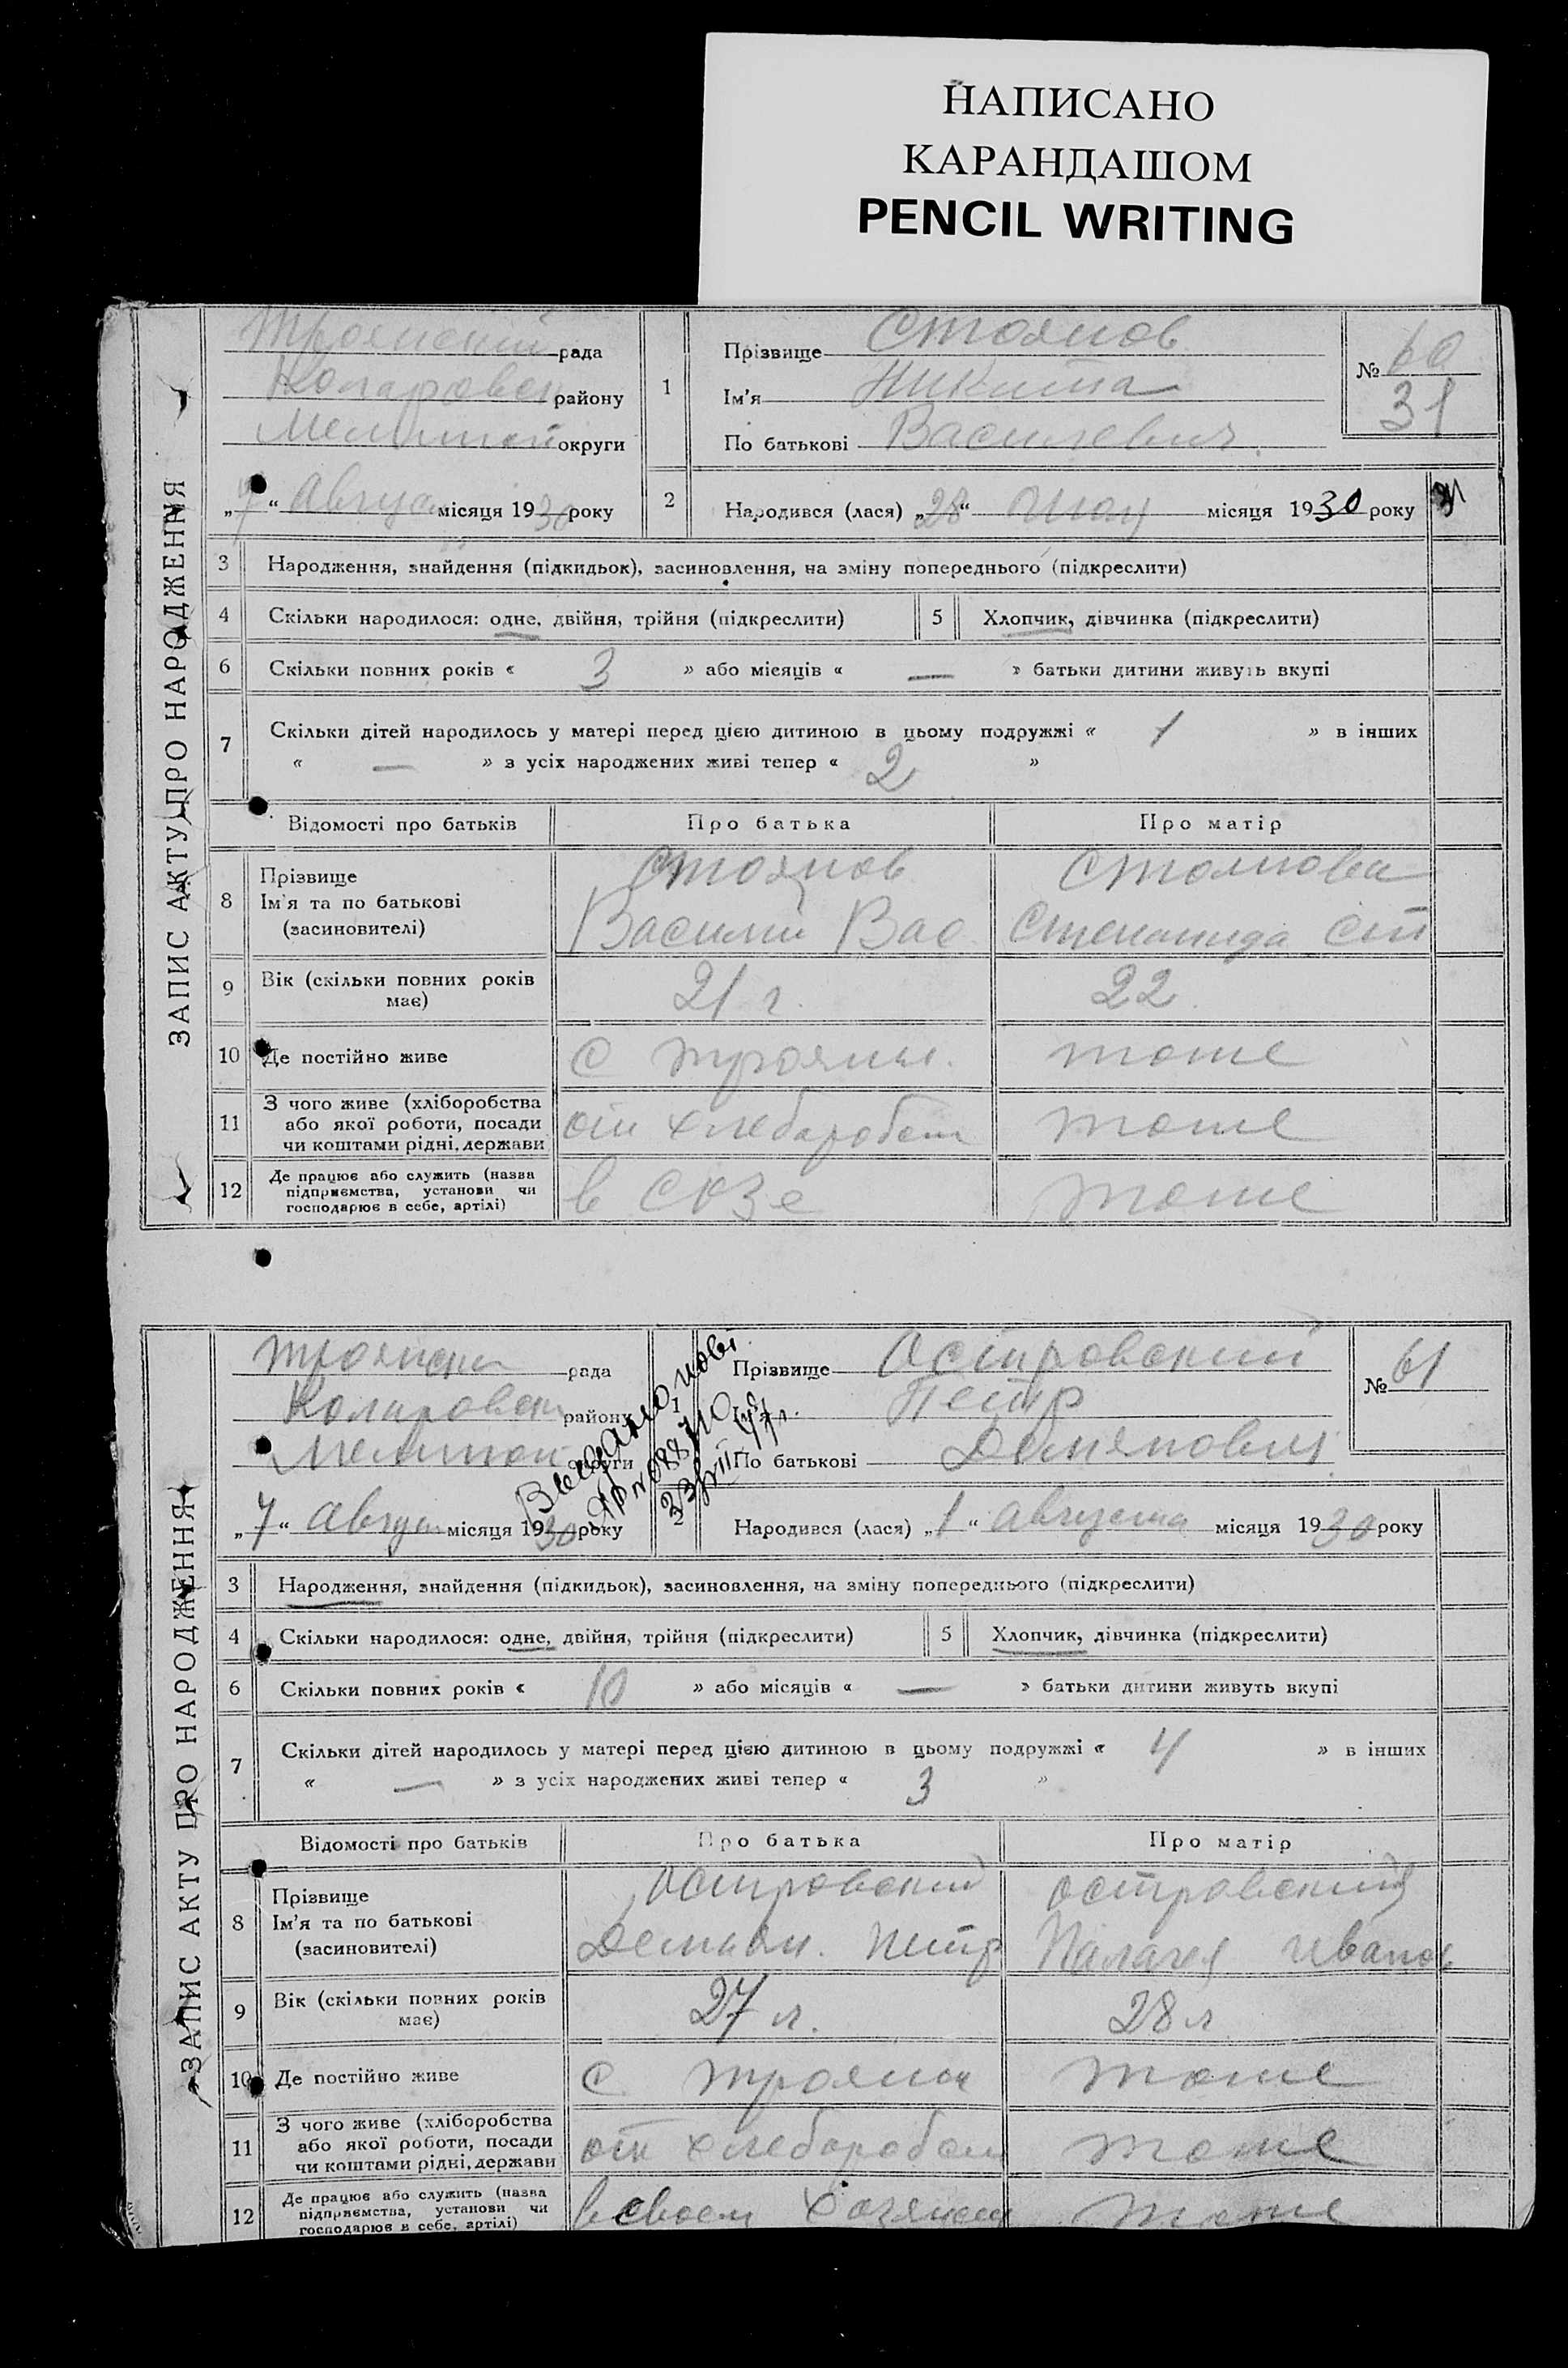 НАПИСАНО
КАРАНДАШОМ
PENCIL WRITING
ЗАПИС АКТУ ПРО НАРОДЖЕННЯ
Троянский рада
Коларовск району
Мелитоп округи
„7“ Августа місяця 1930 року
1
Прізвище Стоянов
Ім'я Никита
По батькові Васильевич
№ 60
31
2
Народився (лася) „28“ Июля місяця 1930 року
3 Народження, знайдення (підкидьок), засиновлення, на зміну попереднього (підкреслити)
4 Скільки народилося: одне, двійня, трійня (підкреслити) 5 Хлопчик, дівчинка (підкреслити)
6 Скільки повних років « 3 » або місяців « — » батьки дитини живуть вкупі
7 Скільки дітей народилось у матері перед цією дитиною в цьому подружжі « 1 » в інших
« — » з усіх народжених живі тепер « 2 »
Відомості про батьків Про батька Про матір
8 Прізвище
Ім'я та по батькові
(засиновителі)
Стоянов
Василий Вас
Стоянова
Степанида Ст
9 Вік (скільки повних років
має)
21 г.
22.
10 Де постійно живе с Трояны. тоже
11 З чого живе (хліборобства
або якої роботи, посади
чи коштами рідні, держави
от хлеборобст
тоже
12 Де працює або служить (назва
підприємства, установи чи
господарює в себе, артілі)
в СОЗе
тоже
ЗАПИС АКТУ ПРО НАРОДЖЕННЯ
Троянски рада
Коларовск району
Мелитоп округи
„7“ Август місяця 1930 року
1
Прізвище Островский
Ім'я Петр
По батькові Демянович
№ 61
2
Народився (лася) „1“ Августа місяця 1930 року
3 Народження, знайдення (підкидьок), засиновлення, на зміну попереднього (підкреслити)
4 Скільки народилося: одне, двійня, трійня (підкреслити) 5 Хлопчик, дівчинка (підкреслити)
6 Скільки повних років « 10 » або місяців « — » батьки дитини живуть вкупі
7 Скільки дітей народилось у матері перед цією дитиною в цьому подружжі « 4 » в інших
« — » з усіх народжених живі тепер « 3 »
Відомості про батьків Про батька Про матір
8 Прізвище
Ім'я та по батькові
(засиновителі)
Островский
Демьян. Петр
Островский
Палагея Иванов
9 Вік (скільки повних років
має)
27 л.
28 л
10 Де постійно живе с Трояны тоже
11 З чого живе (хліборобства
або якої роботи, посади
чи коштами рідні, держави
от хлеборобст
тоже
12 Де працює або служить (назва
підприємства, установи чи
господарює в себе, артілі)
в своем хозяйст
тоже